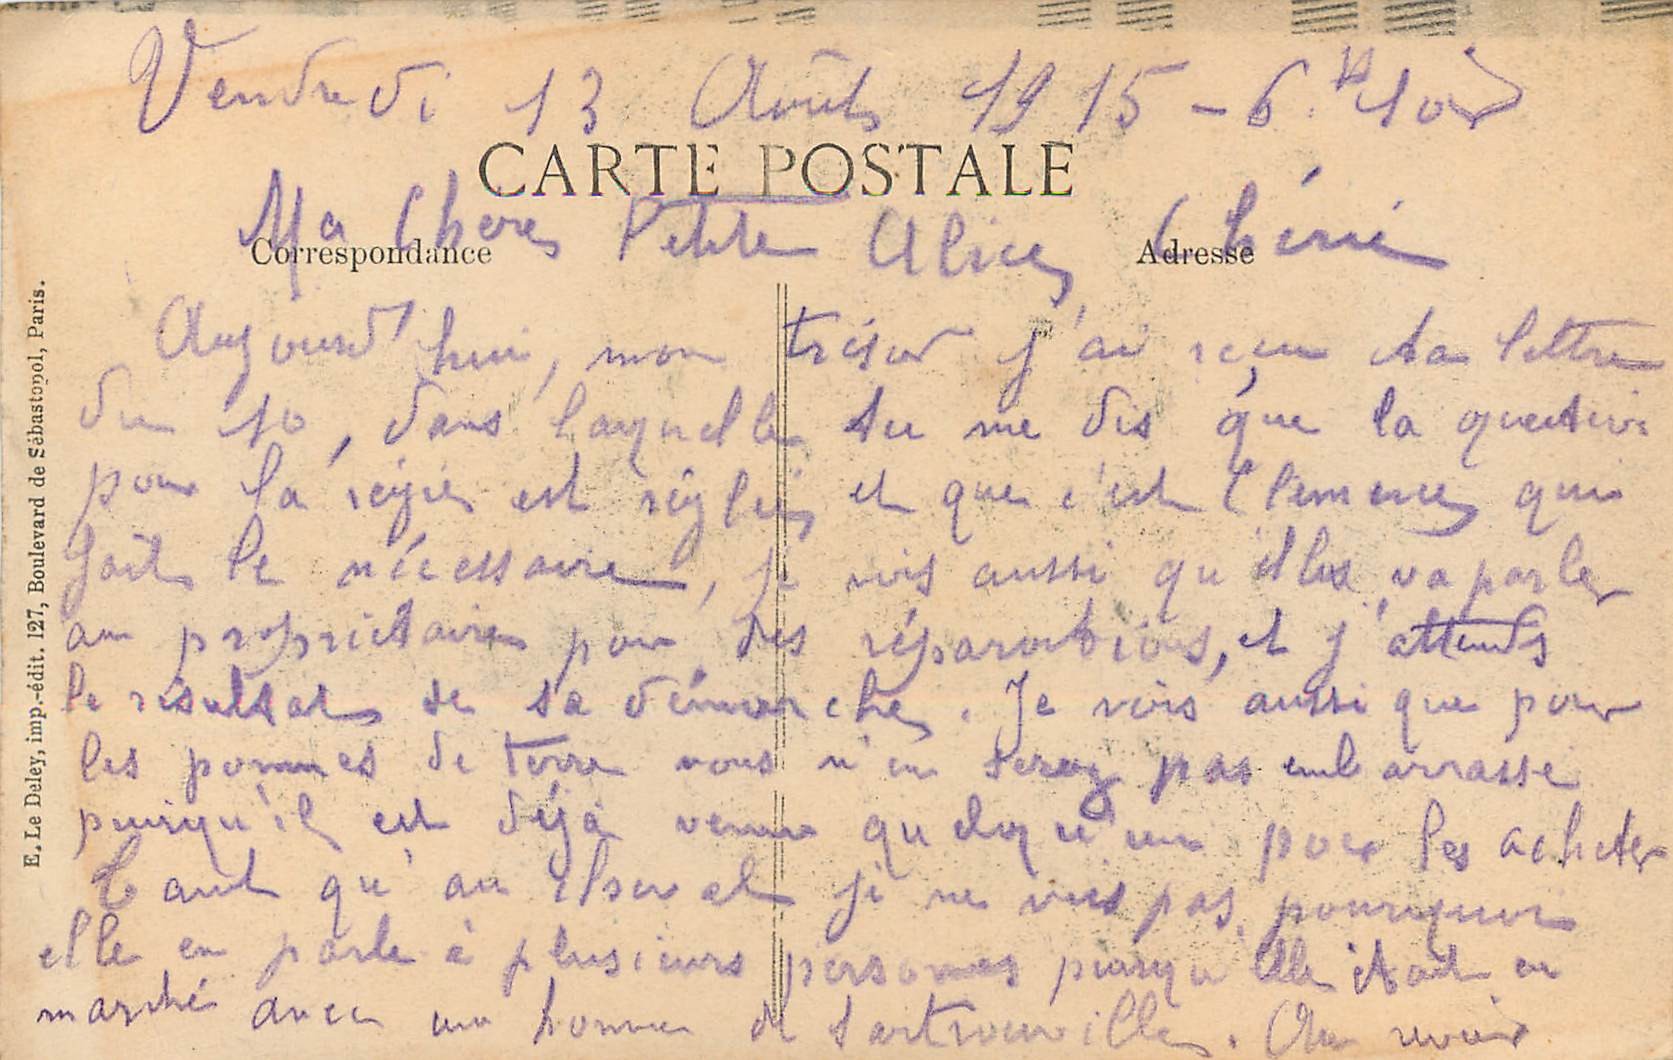 Vendredi 13 Août 1915 - 6h soir
CARTE POSTALE
Ma Chere Petite Alice Chérie
Correspondance
Adresse
Aujourd'hui, mon trésor j'ai reçu ta lettre
du 10, dans laquelle tu me dis que la question
pour la régie est réglée et que c'est Clemence qui
fait le nécessaire, je vois aussi qu'elle va parler
au propriétaire pour des réparations, et j'attends
le résultat de sa démarche. Je vois aussi que pour
les pommes de terre vous n'en serez pas embarrassé
puisqu'il est déjà venu quelqu'un pour les acheter
Tant qu'au cheval je ne vois pas pourquoi
elle en parle à plusieurs personnes puisqu'elle était en
marché avec un homme de Sartrouville. Au revoir
E. Le Deley, imp.-édit. 127, Boulevard de Sébastopol, Paris.